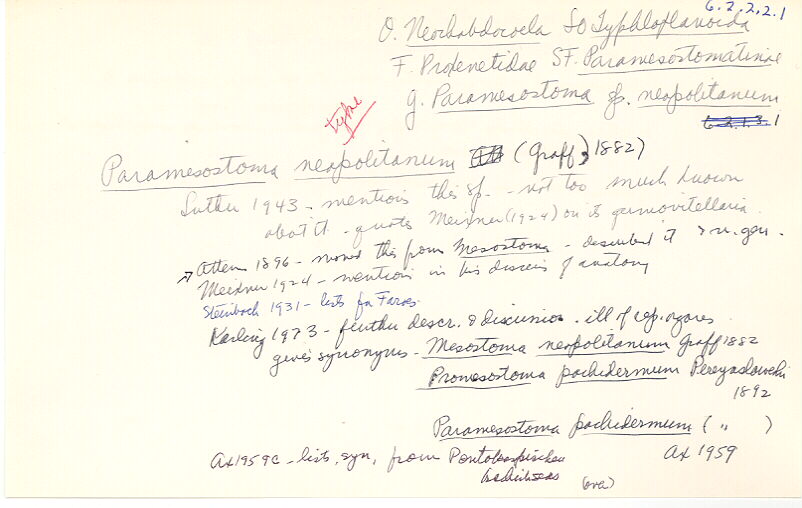 6.2.2.2.1
O. Neorhabdocoela SO Typhloplanoida
F. Proxenetidae SF. Paramesostomatinae
g. Paramesostoma sp. neopolitanum
6.2.1.3.1
type
Paramesostoma neapolitanum (Graff, 1882)
Luther 1943 - mentions this sp. - not too much known
about it - quotes Meixner (1924) on its germovitellaria.
Attems 1896 - moved this from Mesostoma - described it > n. gen.
Meixner 1924 - mention in his discuss of anatomy
Steinbock 1931 - lists for Faroes.
Karling 1973 - further descr. & discussion. ill of rep. organs.
gives synonyms - Mesostoma neapolitanum Graff 1882
Promesostoma pachidermum Pereyaslawcki
1892
Paramesostoma pachidermum ( " )
Ax 1959
Ax 1959c - lists, syn, from
(ova)